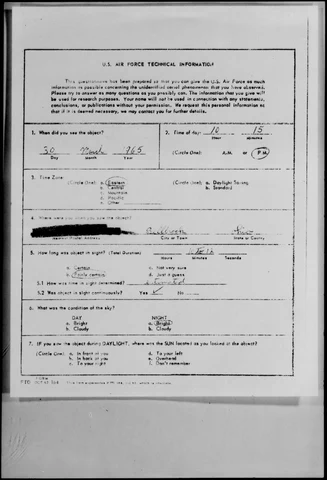 U.S. AIR FORCE TECHNICAL INFORMATION
This questionnaire has been prepared so that you can give the U.S. Air Force as much
information as possible concerning the unidentified aerial phenomenon that you have observed.
Please try to answer as many questions as you possibly can. The information that you give will
be used for research purposes. Your name will not be used in connection with any statements,
conclusions, or publications without your permission. We request this personal information so
that if it is deemed necessary, we may contact you for further details.
1. When did you see the object?
30 March 965
Day Month Year
2. Time of day: 10 15
Hour Minutes
(Circle One): A.M. or P.M.
3. Time Zone:
(Circle One): a. Eastern
b. Central
c. Mountain
d. Pacific
e. Other
(Circle One): a. Daylight Saving
b. Standard
4. Where were you when you saw the object?
Nearest Postal Address City or Town State or County
5. How long was object in sight? (Total Duration)
Hours Minutes Seconds
a. Certain c. Not very sure
b. Fairly certain d. Just a guess
5.1 How was time in sight determined?
5.2 Was object in sight continuously? Yes No
6. What was the condition of the sky?
DAY NIGHT
a. Bright a. Bright
b. Cloudy b. Cloudy
7. IF you saw the object during DAYLIGHT, where was the SUN located as you looked at the object?
(Circle One): a. In front of you d. To your left
b. In back of you e. Overhead
c. To your right f. Don't remember
FORM